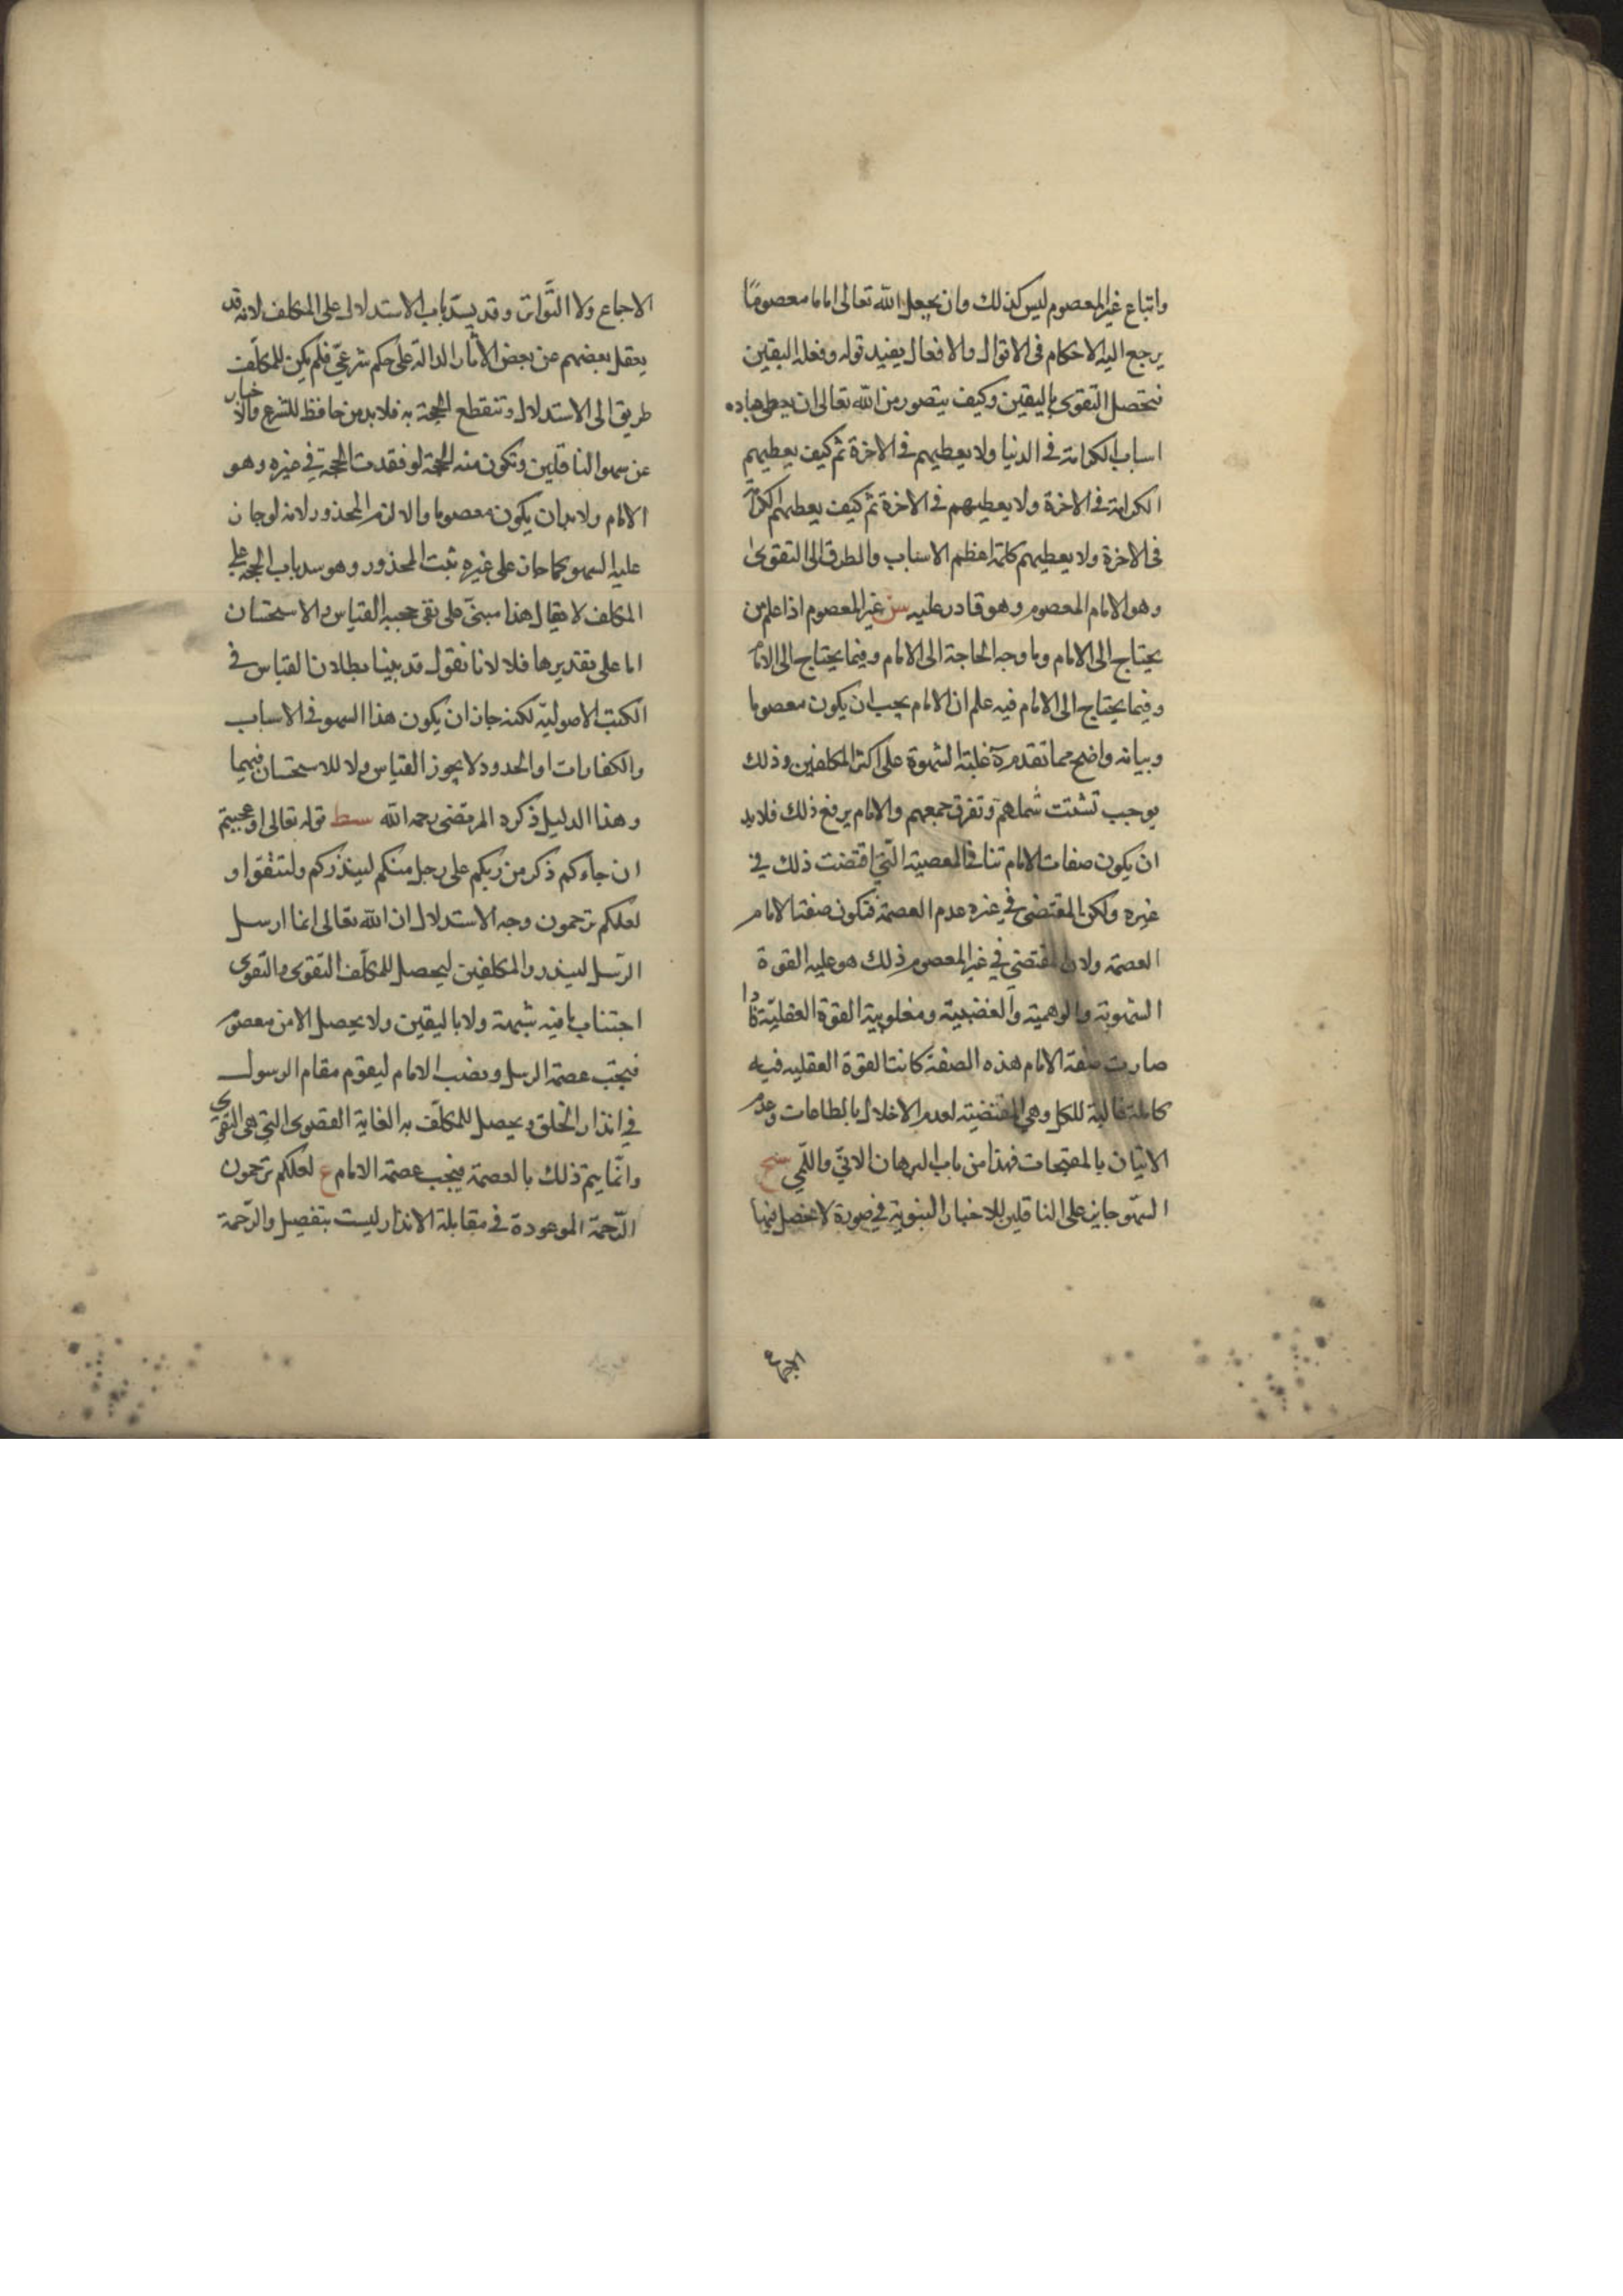 واتباع غير المعصوم ليس كذلك وان يجعل الله تعالى اماما معصومًا
يرجع اليه الاحكام فى الاقوال والافعال يفيد قوله وفعله اليقين
فتحصل التقوى باليقين وكيف يتصور من الله تعالى ان يعطى عباده
اسباب الكرامة فى الدنيا ولا يعطيهم فى الاخرة ثم كيف يعطيهم
الكرامة فى الاخرة ولا يعطيهم فى الاخرة ثم كيف يعطيهم الكرامة
فى الاخرة ولا يعطيهم كلمة اعظم الاسباب والطرق الى التقوى
وهو الامام المعصوم وهو قادر عليه سز غير المعصوم اذا علم من
يحتاج الى الامام وما وجه الحاجة الى الامام وفيما يحتاج الى الامام
وفيما يحتاج الى الامام فيه علم ان الامام يجب ان يكون معصوما
وبيانه واضح مما تقدم غلبة الشهوة على اكثر المكلفين وذلك
يوجب تشتت شملهم وتفرق جمعهم والامام يرفع ذلك فلا بد
ان يكون صفات الامام تنافى المعصية التى اقتضت ذلك فى
غيره ولكن المقتضى فى غيره عدم العصمة فتكون صفة الامام
العصمة ولان المقتضى فى غير المعصوم ذلك هو عليه القوة
الشهوية والوهمية والغضبية ومغلوبية القوة العقلية فاذا
صارت صفة الامام هذه الصفة كانت القوة العقليه فيه
كاملة غالبة للكل وهى المقتضية لعدم الاخلال بالطاعات وعدم
الاتيان بالمقبحات فهذا من باب البرهان الانى واللمى سح
السهو جايز على الناقلين للاخبار النبوية فى صورة لا يحصل فيها
الاجماع
الاجماع ولا التواتر وقد يسد باب الاستدلال على المكلف لانه قد
يعقل بعضهم عن بعض الأثار الدالة على حكم شرعى فلم يكن للمكلف
طريق الى الاستدلال وتنقطع الحجة به فلا بد من حافظ للشرع والاخبار
عن سهو الناقلين وتكون منه الحجة لو فقدت الحجة فى غيره وهو
الامام ولا بد ان يكون معصوما والا لزم المحذور لانه لو جاز
عليه السهو كما جاز على غيره ثبت المحذور وهو سد باب الحجة على
المكلف لا يقال هذا مبنى على نفى حجية القياس والاستحسان
اما على تقديرها فلا لانا نقول قد بينا بطلان القياس فى
الكتب الاصولية لكنه جاز ان يكون هذا السهو فى الاسباب
والكفارات او الحدود ولا يجوز القياس ولا للاستحسان فيهما
وهذا الدليل ذكره المرتضى رحمه الله سط قوله تعالى اوعجبتم
ان جاءكم ذكر من ربكم على رجل منكم لينذركم ولتتقوا و
لعلكم ترحمون وجه الاستدلال ان الله تعالى انما ارسل
الرسل لينذروا المكلفين ليحصل للمكلف التقوى والتقوى
اجتناب ما فيه شبهة ولا باليقين ولا يحصل الا من معصوم
فيجب عصمة الرسل ونصب الامام ليقوم مقام الرسول
فى انذار الخلق ويحصل للمكلف به الغاية القصوى التى هى التقوى
وانما يتم ذلك بالعصمة فيجب عصمة الامام ع لعلكم ترحمون
الرحمة الموعودة فى مقابلة الانذار ليست بتفصيل والرحمة